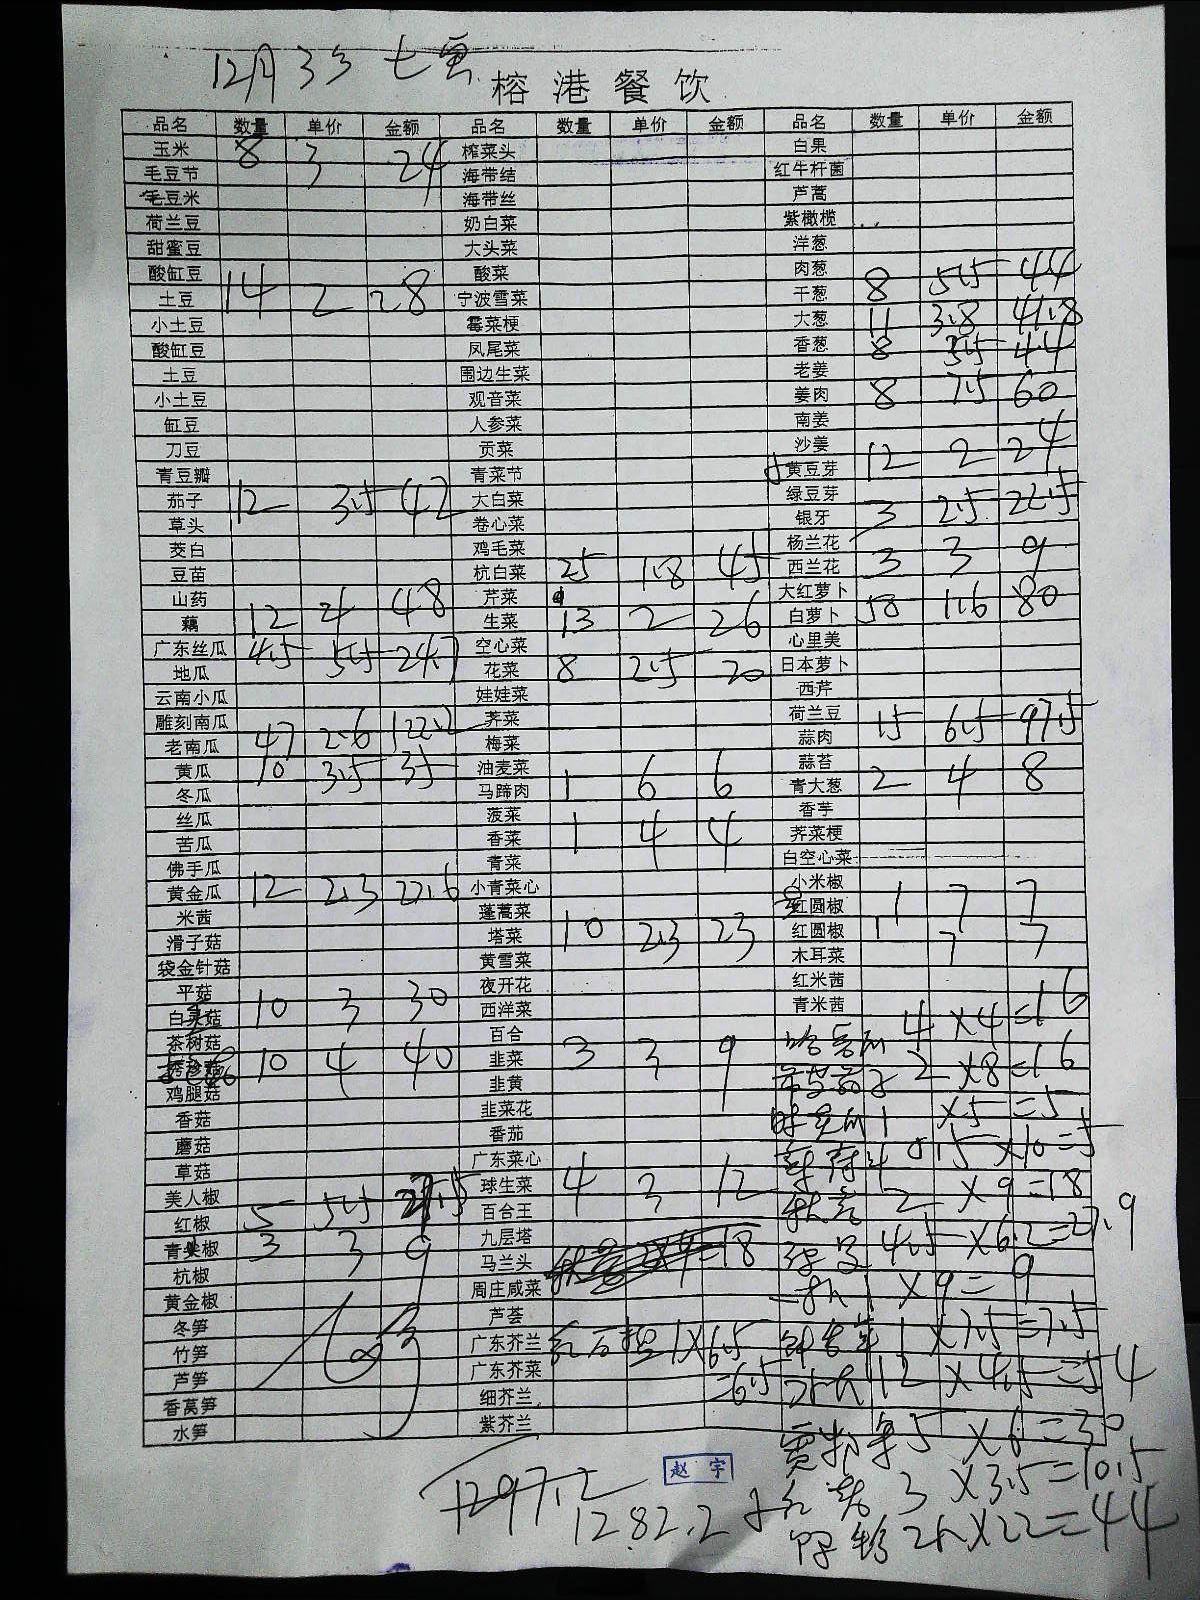 12月3号
榕港餐饮
品名 数量 单价 金额 品名 数量 单价 金额 品名 数量 单价 金额
玉米 8 3 24 榨菜头 白果
毛豆节 海带结 红牛杆菌
毛豆米 海带丝 芦蒿
荷兰豆 奶白菜 紫橄榄
甜蜜豆 大头菜 洋葱
酸缸豆 酸菜 肉葱
土豆 14 2 28 宁波雪菜 干葱 8 5.5 44
小土豆 霉菜梗 大葱 11 3.8 41.8
酸缸豆 凤尾菜 香葱 8 5.5 44
土豆 围边生菜 老姜
小土豆 观音菜 姜肉 8 7.5 60
缸豆 人参菜 南姜
刀豆 贡菜 沙姜
青豆瓣 青菜节 黄豆芽 12 2 24
茄子 12 3.5 42 大白菜 绿豆芽
草头 卷心菜 银牙 3 2.5 22.5
茭白 鸡毛菜 杨兰花
豆苗 杭白菜 25 1.8 45 西兰花 3 3 9
山药 芹菜 大红萝卜
藕 12 4 48 生菜 13 2 26 白萝卜 50 1.6 80
广东丝瓜 4.5 5.5 24.7 空心菜 心里美
地瓜 花菜 8 2.5 20 日本萝卜
云南小瓜 娃娃菜 西芹
雕刻南瓜 荠菜 荷兰豆
老南瓜 47 2.6 122.2 梅菜 蒜肉 15 6.5 97.5
黄瓜 10 3.5 35 油麦菜 蒜苔
冬瓜 马蹄肉 1 6 6 青大葱 2 4 8
丝瓜 菠菜 香芋
苦瓜 香菜 1 4 4 荠菜梗
佛手瓜 青菜 白空心菜
黄金瓜 12 2.3 27.6 小青菜心 小米椒
米茜 蓬蒿菜 红圆椒 1 7 7
滑子菇 塔菜 10 2.3 23 红圆椒 1 7 7
袋金针菇 黄雪菜 木耳菜
平菇 夜开花 红米茜
白灵菇 10 3 30 西洋菜 青米茜
茶树菇 百合 4×4=16
10 4 40 韭菜 3 3 9 2×8=16
鸡腿菇 韭黄
香菇 韭菜花 1 ×5=5
蘑菇 番茄
草菇 广东菜心 0.5×10=5
美人椒 球生菜 4 3 12 秋葵 2 ×9=18
红椒 5 5.5 27.5 百合王
青尖椒 3 3 9 九层塔 4.5×6.2=27.9
杭椒 马兰头 18
黄金椒 周庄咸菜 1×9=9
冬笋 芦荟
竹笋 广东芥兰 1×6.5 1×7.5=7.5
芦笋 广东芥菜 =6.5 12×4.5=54
香莴笋 细芥兰
水笋 紫芥兰
5×6=30
赵宇
1297.2 3×3.5=10.5
1282.2 2×22=44